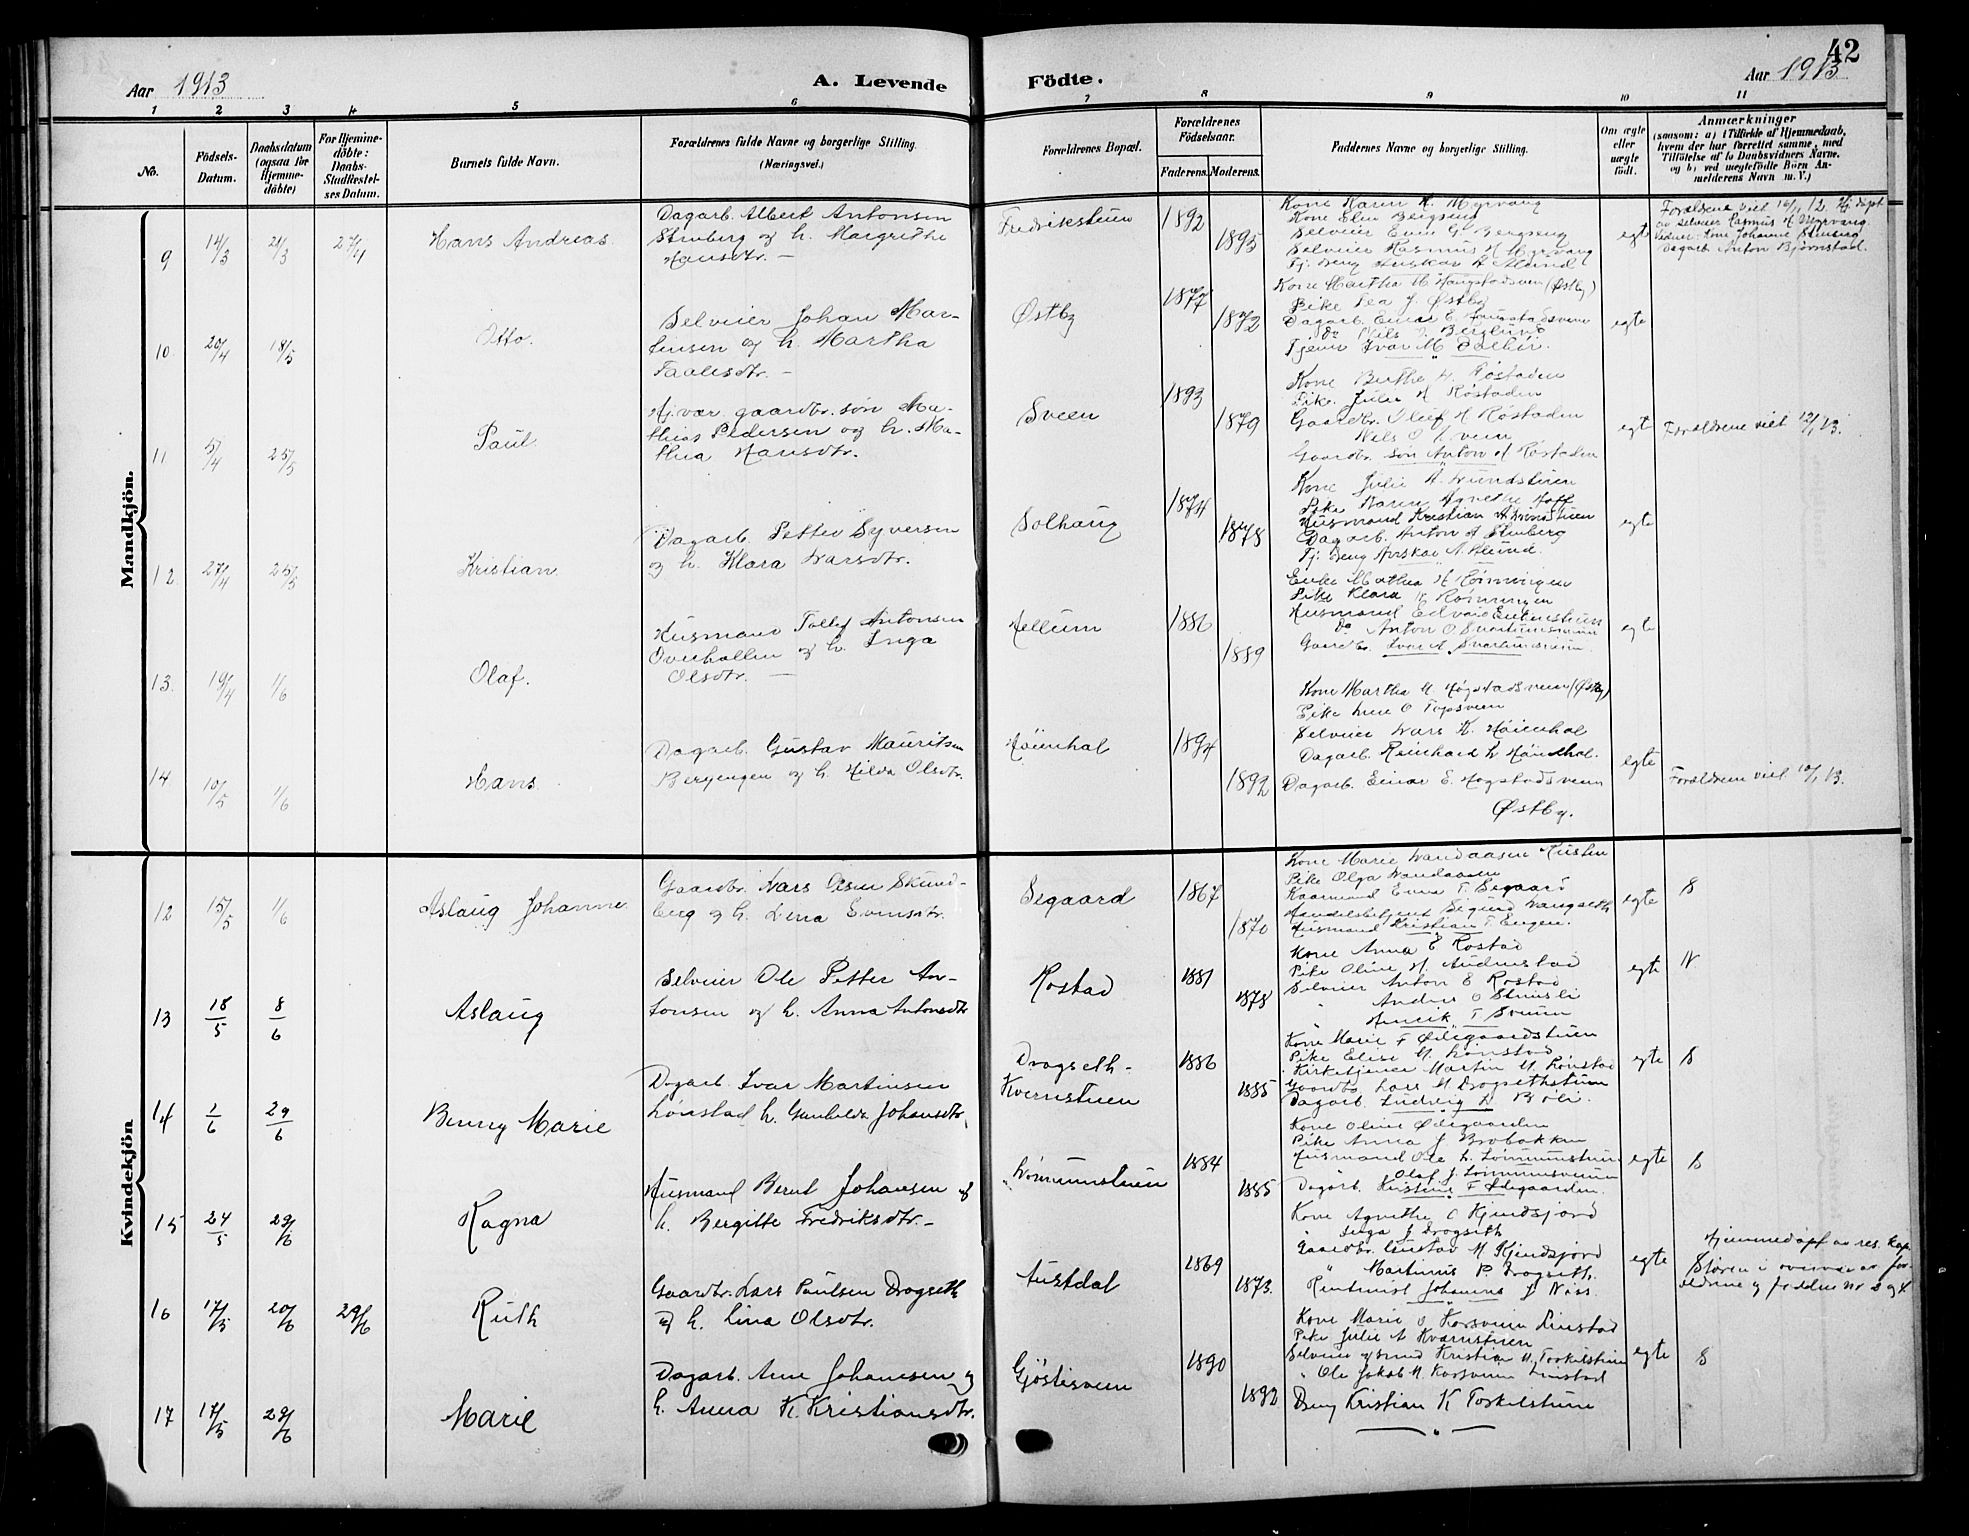 Aar 1913
A. Levende
Födte.
42
Aar 1913
1 2 3 4 5 6 7 8 9 10 11
No.
Födsels-
Datum.
Daabsdatum
(ogsaa for
Hjemme-
döbte)
For Hjemme-
döbte:
Daabs-
Stadfæstel-
ses Datum.
Barnets fulde Navn.
Forældrenes fulde Navne og borgerlige Stilling.
(Næringsvei.)
Forældrenes Bopæl.
Forældrenes
Födselsaar.
Faderens.
Moderens.
Faddernes Navne og borgerlige Stilling.
Om ægte
eller
uægte
födt.
Anmærkninger
(saasom: a) i Tilfælde af Hjemmedaab,
hvem der har forrettet samme, med
Tilföielse af to Daabsvidners Navne,
og b) ved uægtefödte Börn An-
melderens Navn m. V.)
Mandkjön.
9
14/3
21/3
Hans Andreas.
Dagarb. Albert Antonsen
Stenberg og h. Margrethe
Hansdtr. —
Fredrikstuen
1892
1895
Kone Karen H. Myrvang
Kone Elen Bergseng
Selveier Even G. Bergseng
Selveier Rasmus H Myrvang
egte
Forældrene viet 16/1 12. Hj. døpt
av selveier Rasmus H Myrvang
Vidner: Kone Johanne Stenberg
Dagarb. Anton Bjørnstad.
10
20/4
18/5
Otto.
Selveier Johan Mar-
tinsen og h. Martha
Paulsdtr. —
Østby
1877
1872
Kone Martha M. Haugstadsveen (Østby)
Pike Lea J. Østby
Dagarb. Einar E. Haugstadsveen
Do Nils Berglund
Tjener Ivar M
egte
11
5/4
25/5
Paul.
Hj. vær. gaardbr. søn Ma-
thias Pedersen og h. Ma-
thea Hansdtr.
Sveen
1893
1879
Kone Berthe H. Røstaden
Pike. Julie H Røstaden
Gaardbr. Oluf H Røstaden
Nils O Sveen
Gaardbr. søn Anton H Røstaden
egte
Forældrene viet 12/1 13.
12
27/4
25/5
Kristian
Dagarb. Petter Syversen
og h. Klara Larsdtr.
Solhaug
1874
1878
Kone Julie A. Lundstuen
Pike Karen Agnethe Hoff
Husmand Kristian A Lundstuen
Dagarb. Anton A Stenberg
egte
13.
19/4
1/6
Olaf.
Husmand Tollef Antonsen
Overhallen og h. Inga
Olsdtr. —
Hellum
1886
1889
Enke Mathea H Rønningen
Pike Klara K Rønningen
Husmand Edvard
Do Anton O
egte
14.
10/5
1/6
Hans
Dagarb. Gustav Mauritsen
Bergengen og h. Hilda Olsdtr.
Høienhal
1894
1892
Kone Martha M. Høgstadsveen (Østby)
Pike Lene O Topsveen
Selveier Lars K. Høienhal
Dagarb. Reinhard L Høienhal.
Dagarb. Einar E. Høgstadsveen
Østby.
egte
Forældrene viet 10/1 13.
Kvindekjön
12
15/5
1/6
Aslaug Johanne
Gaardbr. Lars Olsen Skund-
berg og h. Lena Evensdtr.
Segaard
1867
1870
Kone Marie Landaasen
Pike Olga Landaasen
Kaarmand Even T Segaard
Handelsbetjent Sigurd Langseth
Husmand Kristian T Engen.
egte
S
13
18/5
8/6
Aslaug
Selveier Ole Petter An-
tonsen og h. Anna Antonsdtr
Rostad
1881
1878
Kone Anna E Rostad
Pike Oline H. Audenstad
Selveier Anton E Rostad
" Anders O Stensli
" Henrik T Sveen
egte
N.
14
1/6
29/6
Benny Marie
Dagarb. Ivar Martinsen
Lønstad h. Gunhilde Johansdtr
Drogseth-
Kvernstuen
1886
1885
Kone Marie F Ødegaardstuen
Pike Elise M. Lønstad
Kirketjener Martin M. Lønstad
Gaardbr. Lars M Drogsethstuen
Dagarb. Ludvig L Bøli.
egte
S
15
24/5
29/6
Ragna
Husmand Bernt Johansen og
h. Bergitte Fredriksdtr. —
Lønnumstuen
1884
1885
Kone Oline Ødegaarden
Pike Anna J Brobakken
Husmand Ole L. Lønnumstuen
" Olaf J. Lønnumsveen
Dagarb. Kristine F Ødegaarden.
egte
S
16
17/5
20/6
29/6
Ruth
Gaardbr. Lars Paulsen Drogseth
og h. Lina Olsdtr.
Austdal
1869
1873.
Kone Agnethe O Kjendsjord
" Inga J Drogseth
Gaardbr. Gustav M Kjendsjord
" Martinus P. Drogseth.
Rentenist Johannes J Næss.
egte
Hjemmedøpt av res. kap.
Støren i overvær av for-
ældrene og faddere nr 2 og 4.
17
17/5
29/6
Marie
Dagarb. Arne Johansen og
h. Anna K. Kristiansdtr.
Gjøstisveen
1890
1892
Kone Marie O Korsveien Linstad
Pike Julie A Kvernstuen
Selveier Kristian M. Toskilstuen
" Ole Jakob M. Korsveien Linstad
Dreng Kristian K Toskilstuen
egte
S